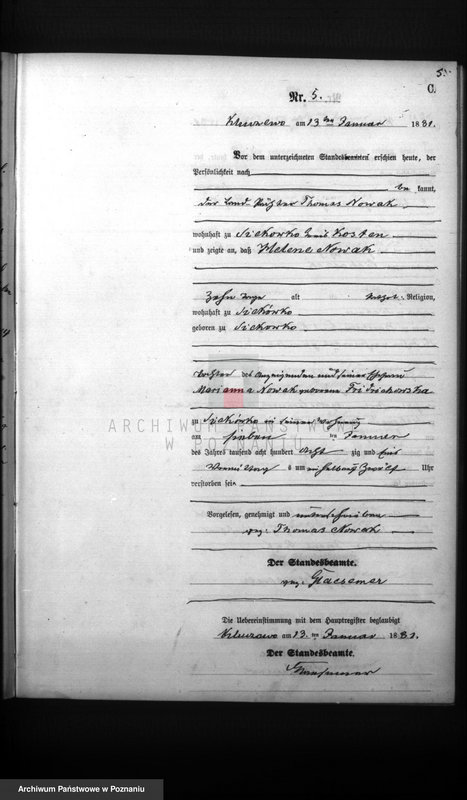 5.
C.
Nr. 5.
Kluczewo am 13 ten Januar 1881.
Vor dem unterzeichneten Standesbeamten erschien heute, der
Persönlichkeit nach
be kannt,
der Land Pächter Thomas Nowak
wohnhaft zu Sickorko Kreis Kosten
und zeigte an, daß Helene Nowak
Zehn Tage alt kathol. Religion,
wohnhaft zu Sickórko
geboren zu Sickorko
Tochter des Anzeigenden und seiner Ehefrau
Marianna Nowak geborene Fridrichowska
zu Sickórko in seiner Wohnung
am sieben ten Januar
des Jahres tausend acht hundert acht zig und eins
Vormittag s um ein halb Zwölf Uhr
verstorben sei
Vorgelesen, genehmigt und unterschrieben
gez. Thomas Nowak
Der Standesbeamte.
gez.
Die Uebereinstimmung mit dem Hauptregister beglaubigt
Kluczewo am 13. ten Januar 1881.
Der Standesbeamte.
ARCHIWUM PAŃSTWOWE
W POZNANIU
Archiwum Państwowe w Poznaniu